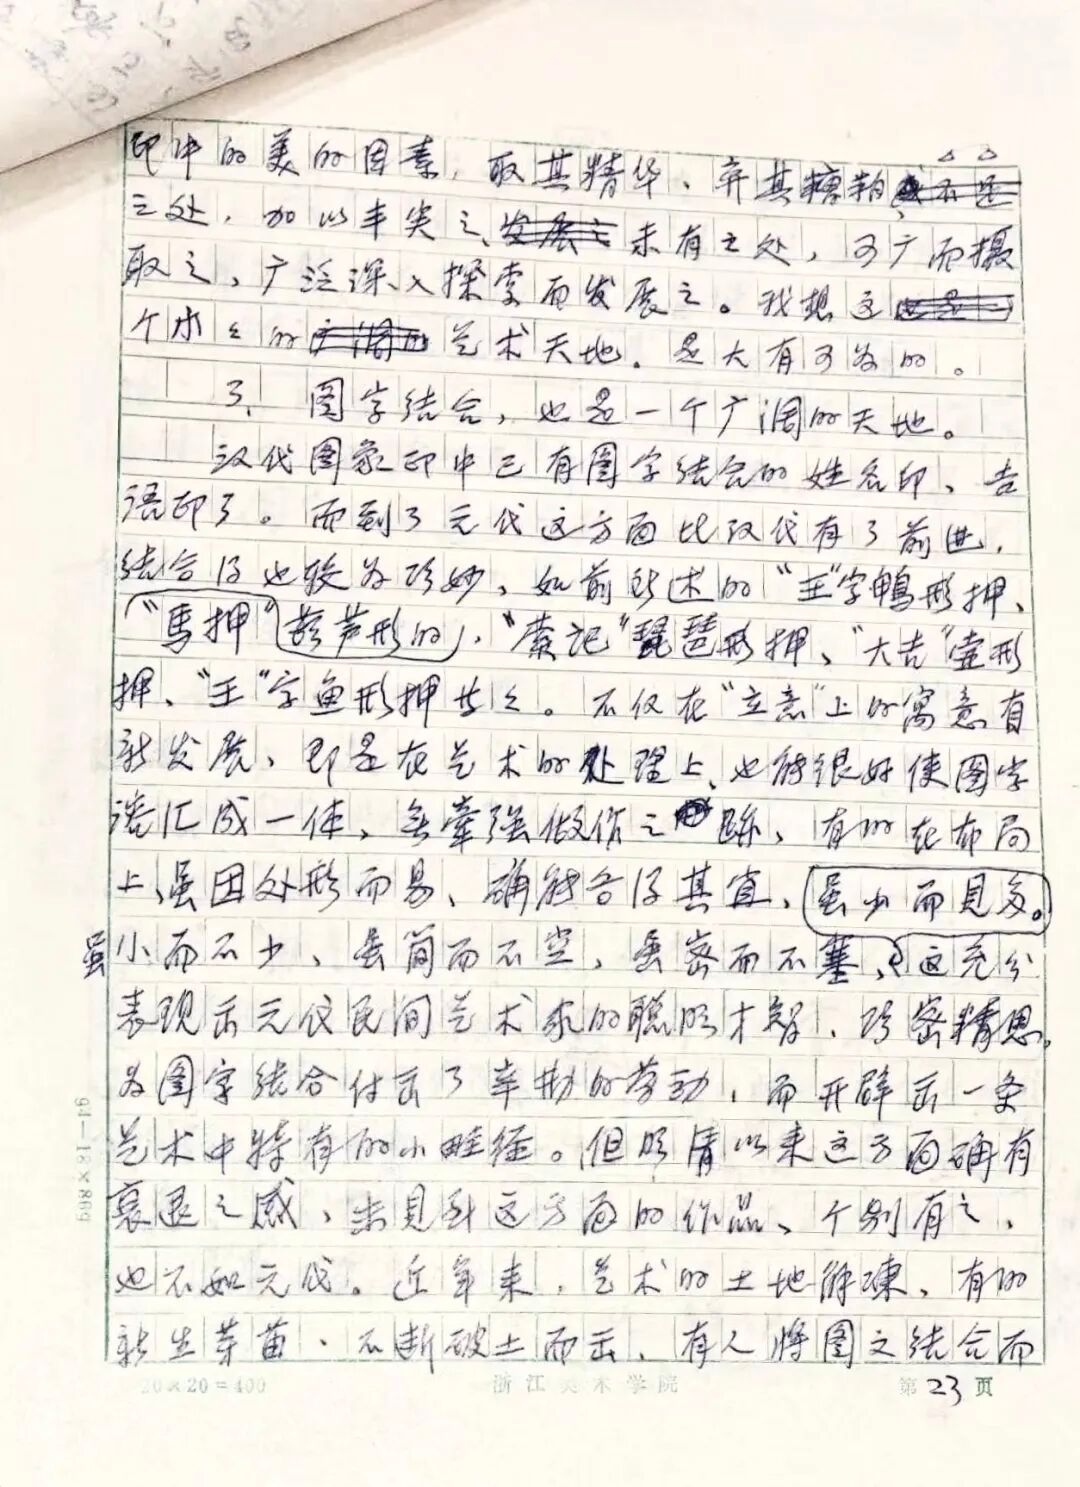 印中的美的因素，取其精华、弃其糟粕
之处，加以丰实之、未有之处，可广而摄
取之，广泛深入探索而发展之。我想这
个小之的艺术天地，是大有可为的。
3、图字结合，也是一个广阔的天地。
汉代图象印中已有图字结合的姓名印、吉
语印了。而到了元代这方面比汉代有了前进，
结合得也较为巧妙、如前所述的“王”字鸭形押、
“馬押”葫芦形的，“蒙记”琵琶形押、“大吉”壶形
押、“王”字鱼形押等之。不仅在“立意”上的寓意有
新发展，即是在艺术的处理上、也能很好使图字
溶汇成一体，无牵强做作之跡，有的在布局
上、虽因处形而易、确能各得其宜，虽少而见多。
虽小而不少，虽简而不空，虽密而不塞，这充分
表现出元代民间艺术家的聪明才智、巧密精思，
为图字结合付出了辛勤的劳动，而开辟出一条
艺术中特有的小畦径。但明清以来这方面确有
衰退之感，未见到这方面的作品、个别有之，
也不如元代。近年来，艺术的土地解凍，有的
新生芽苗，不断破土而出，有人将图文结合而
94-18×869
20×20=400
浙江美术学院
第23页